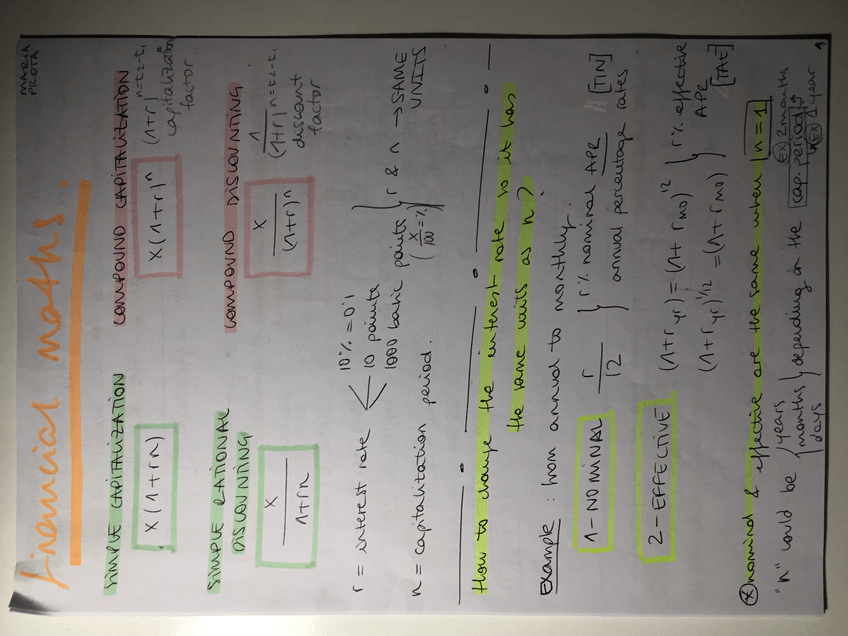 MARIA
PROTA
financial maths.
SIMPLE CAPITALIZATION
X(1+rn)
COMPOUND CAPITALIZATION
X(1+r)^n
(1+r)^n=t2-t1
capitalization
factor
SIMPLE RATIONAL
DISCOUNTING
X/(1+rn)
COMPOUND DISCOUNTING
X/(1+r)^n
1/(1+r)^n=t2-t1
discount
factor
r = interest rate
10% = 0'1
10 points
1000 basic points (X/100 = %)
n = capitalitation period.
r & n → SAME
UNITS
How to change the interest rate so it has
the same units as n?
Example: from annual to monthly.
1-NOMINAL r/12 r% nominal APR [TIN]
annual percentage rates
2-EFFECTIVE (1+r yr) = (1+r mo)^12 r% effective
(1+r yr)^1/12 = (1+r mo) APR [TAE]
* nominal & effective are the same when n=1
"n" could be years
months
days
depending on the cap. period
Ex 2 months
Ex 1 year
1